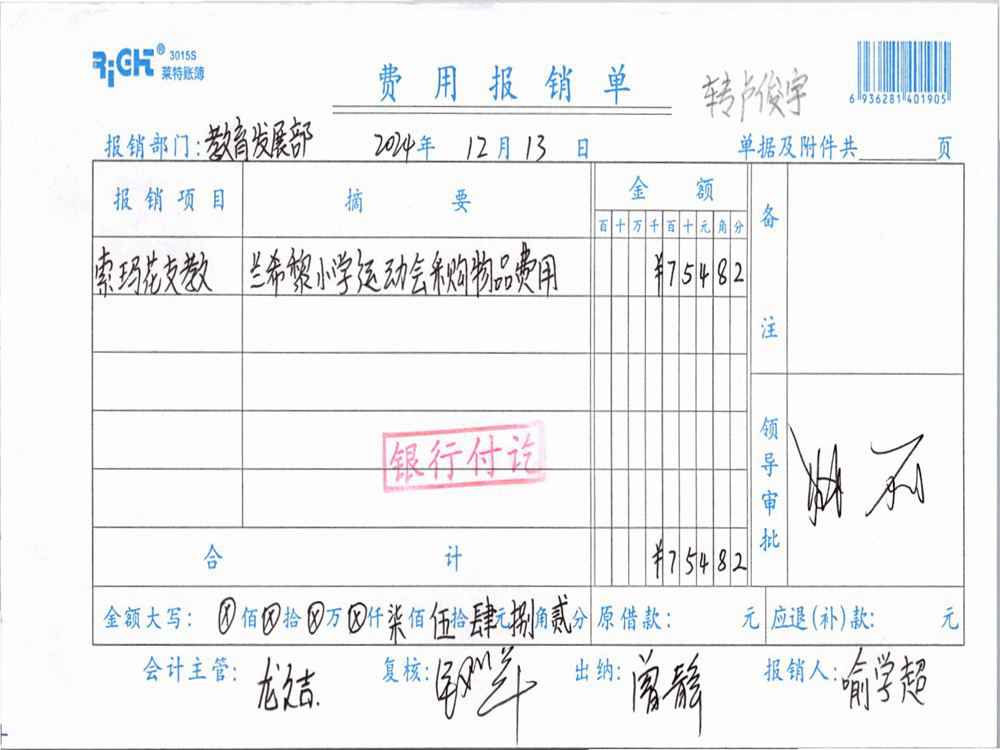 RiCH® 3015S
莱特账簿
费用报销单
转卢俊宇
6 936281 401905
报销部门:教育发展部 2024年 12月 13日 单据及附件共 页
报销项目 摘要 金额 备注
百十万千百十元角分
索玛花支教 兰希黎小学运动会采购物品费用 ¥75482
银行付讫
领导审批
合计 ¥75482
金额大写: ⊗佰⊗拾⊗万⊗仟柒佰伍拾肆元捌角贰分 原借款: 元 应退(补)款: 元
会计主管: 龙文吉 复核: 出纳: 曾静 报销人: 喻学超